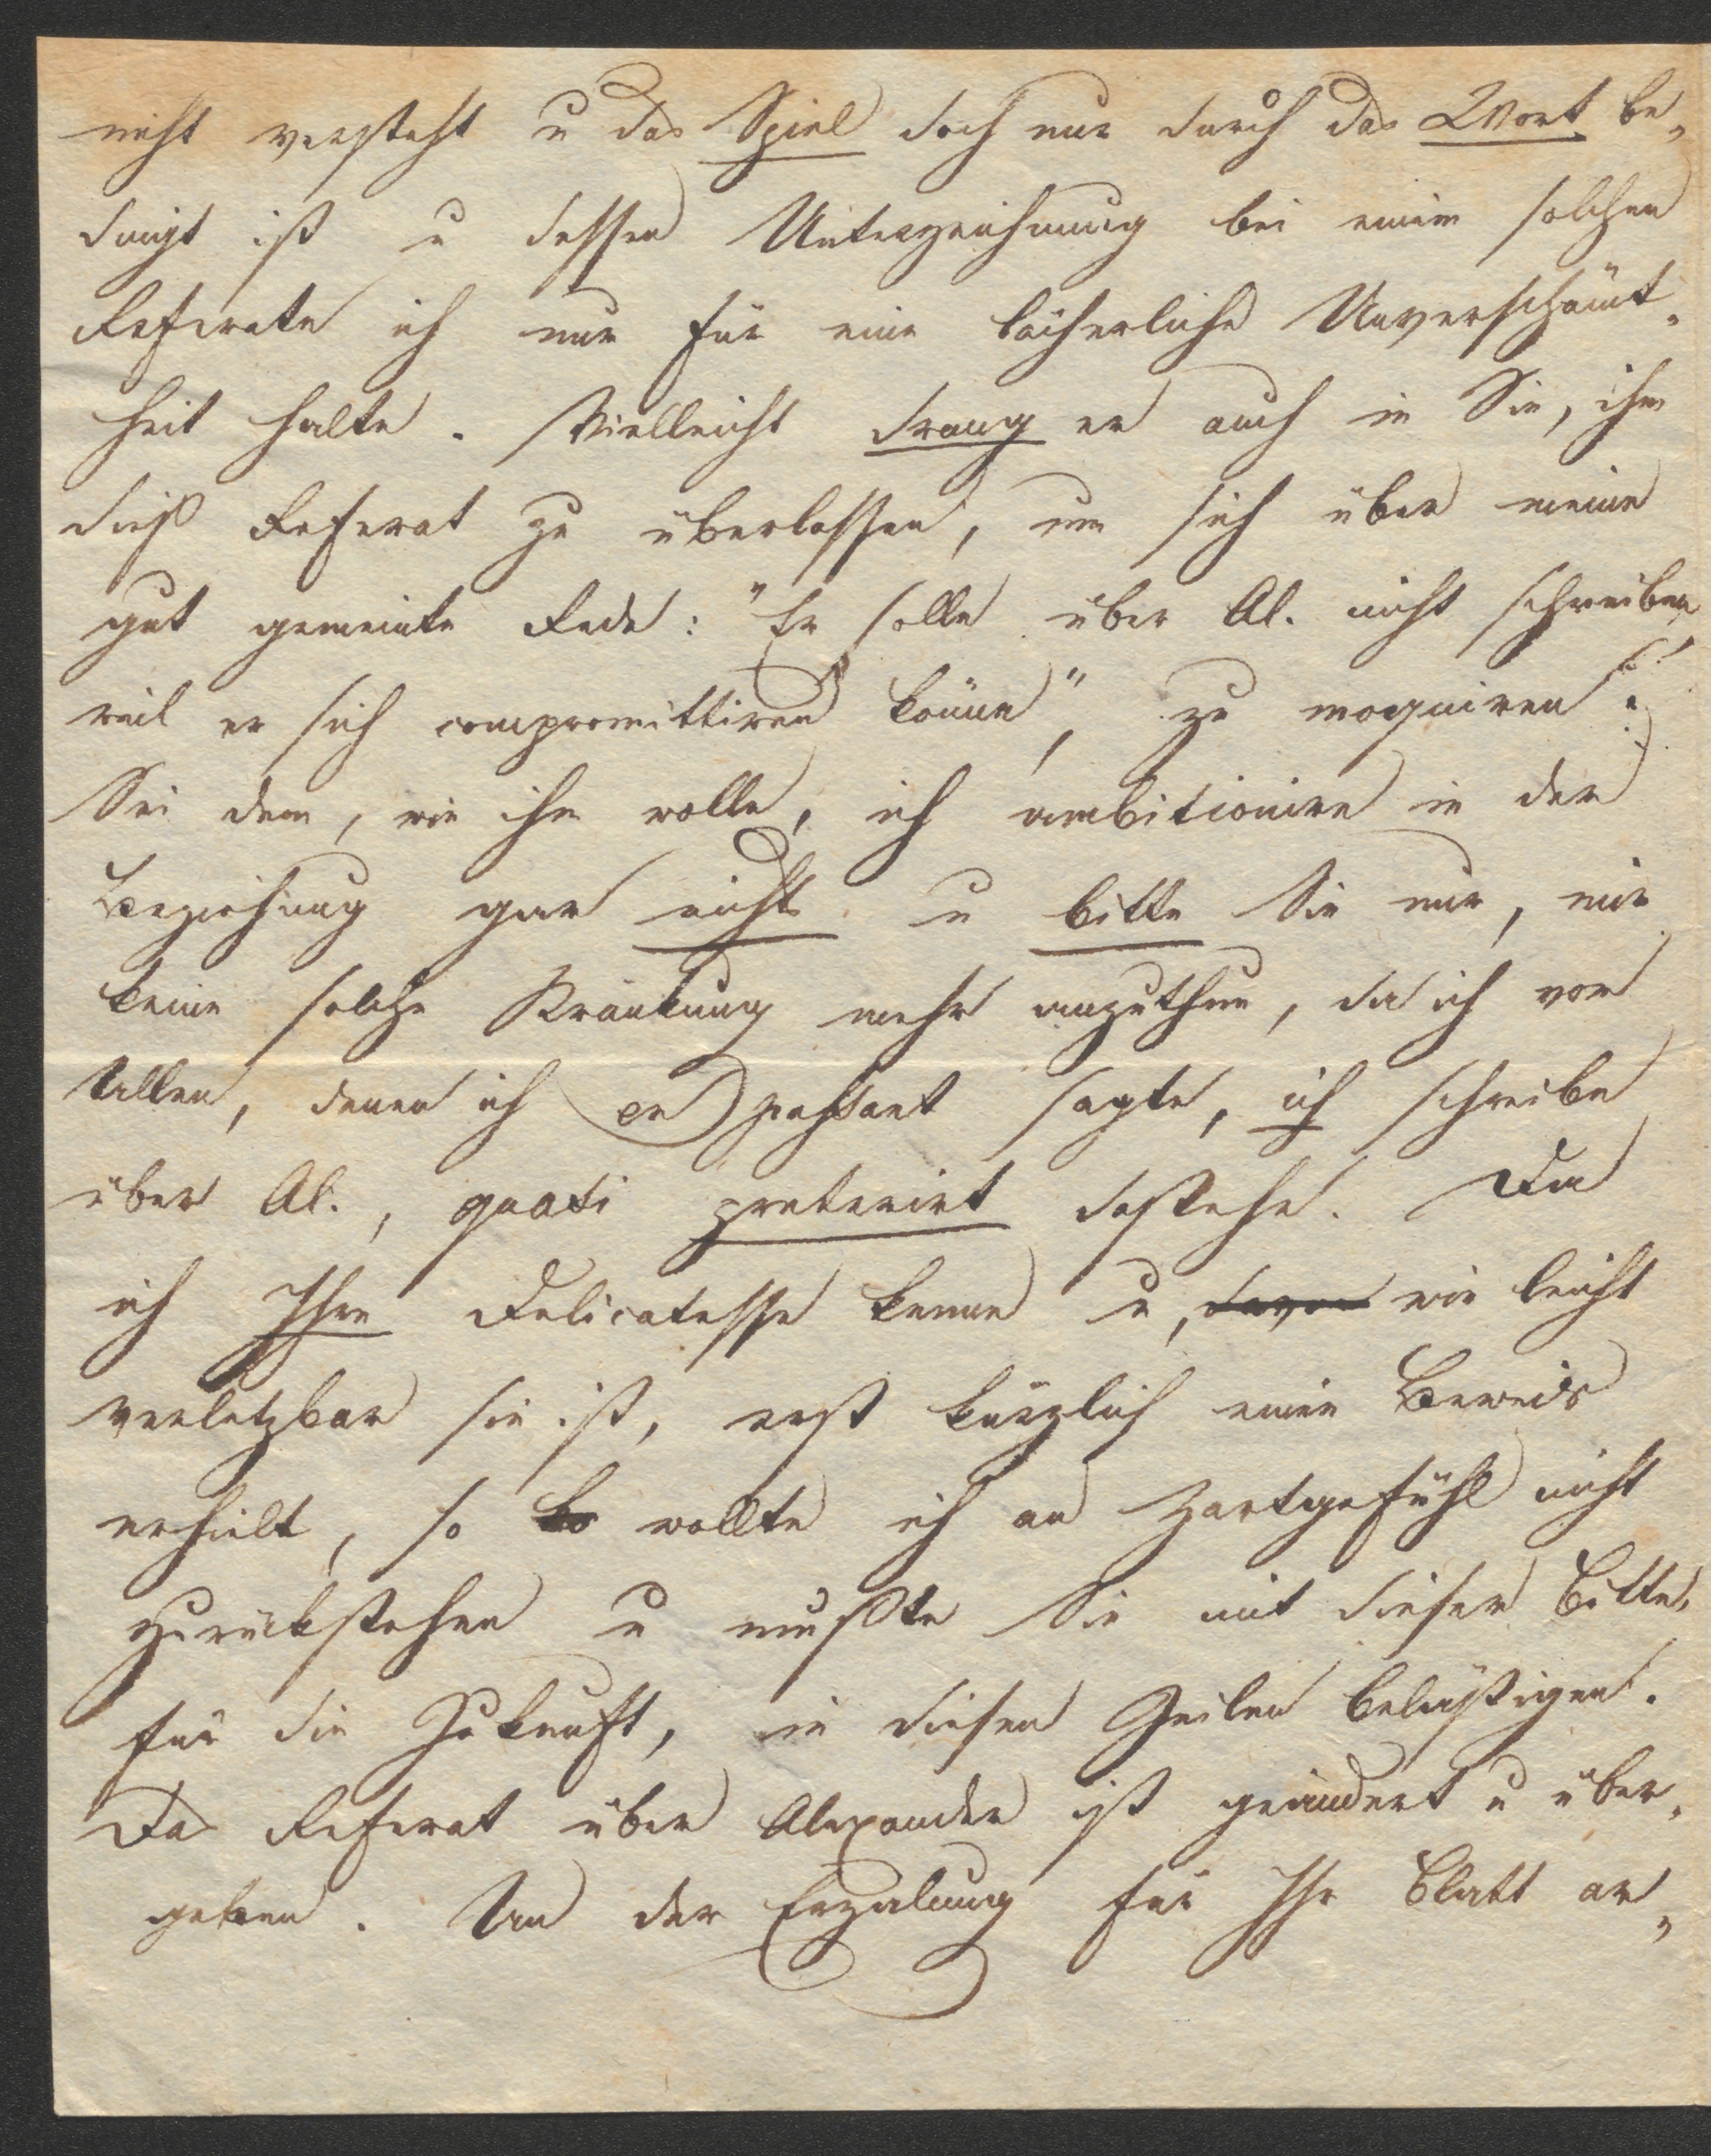 nicht versteht u das Spiel doch nur durch das Wort be„
dingt ist u dessen Unterzeichnung bei einem solchen
Referate ich nur für eine lächerliche Unverschämt„
heit halte. Vielleicht drang er auch in Sie, ihm
dieß Referat zu überlassen, um sich über meine
gut gemeinte Rede: "Er solle über Al. nicht schreiben,
weil er sich compromittiren könne", zu moquiren!
Sei dem, wie ihm wolle, ich ambitionire in der
Beziehung gar nichts u bitte Sie nur, mir
keine solche Kränkung mehr anzuthun, da ich vor
Allen, denen ich en passant sagte, ich schreibe
über Al., quasi preterirt dastehe. Da
ich Ihre Delicatesse kenne u, davon wie leicht
verletzbar sie ist, erst kürzlich einen Beweis
erhielt, so ko wollte ich an Zartgefühl nicht
zurückstehen u mußte Sie mit dieser Bitte,
für die Zukunft, in diesen Zeilen belästigen.
Das Referat über Alexander ist geändert u über„
geben. An der Erzälung für Ihr Blatt ar„